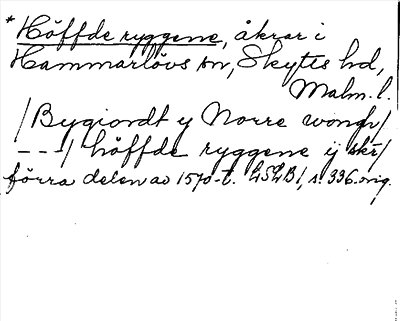 * Höffde ryggene, åkrar i
Hammarlövs sn, Skytts hd,
Malm. l.
/Bygiordt y Norre wongh/
– – –/ höffde ryggene ij skr/
förra delen av 1570-t. LSLB1, s. 336. orig.